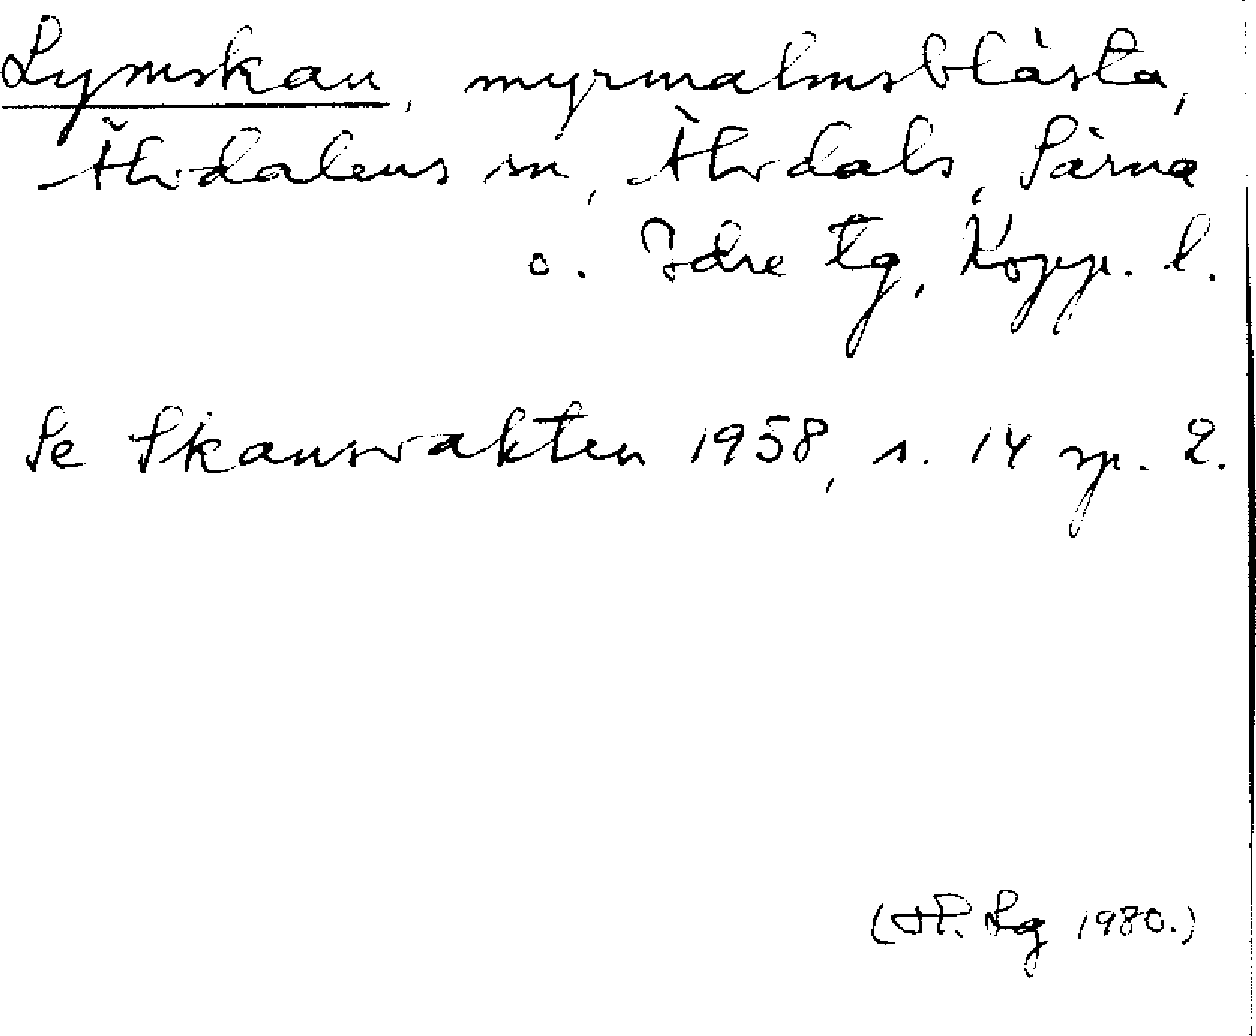 Lymskan, myrmalmsblästa,
Älvdalens sn, Älvdals, Särna
o. Idre tg, Kopp. l.
Se Skansvakten 1958, s. 14 sp. 2.
(H.P. Lg 1980.)